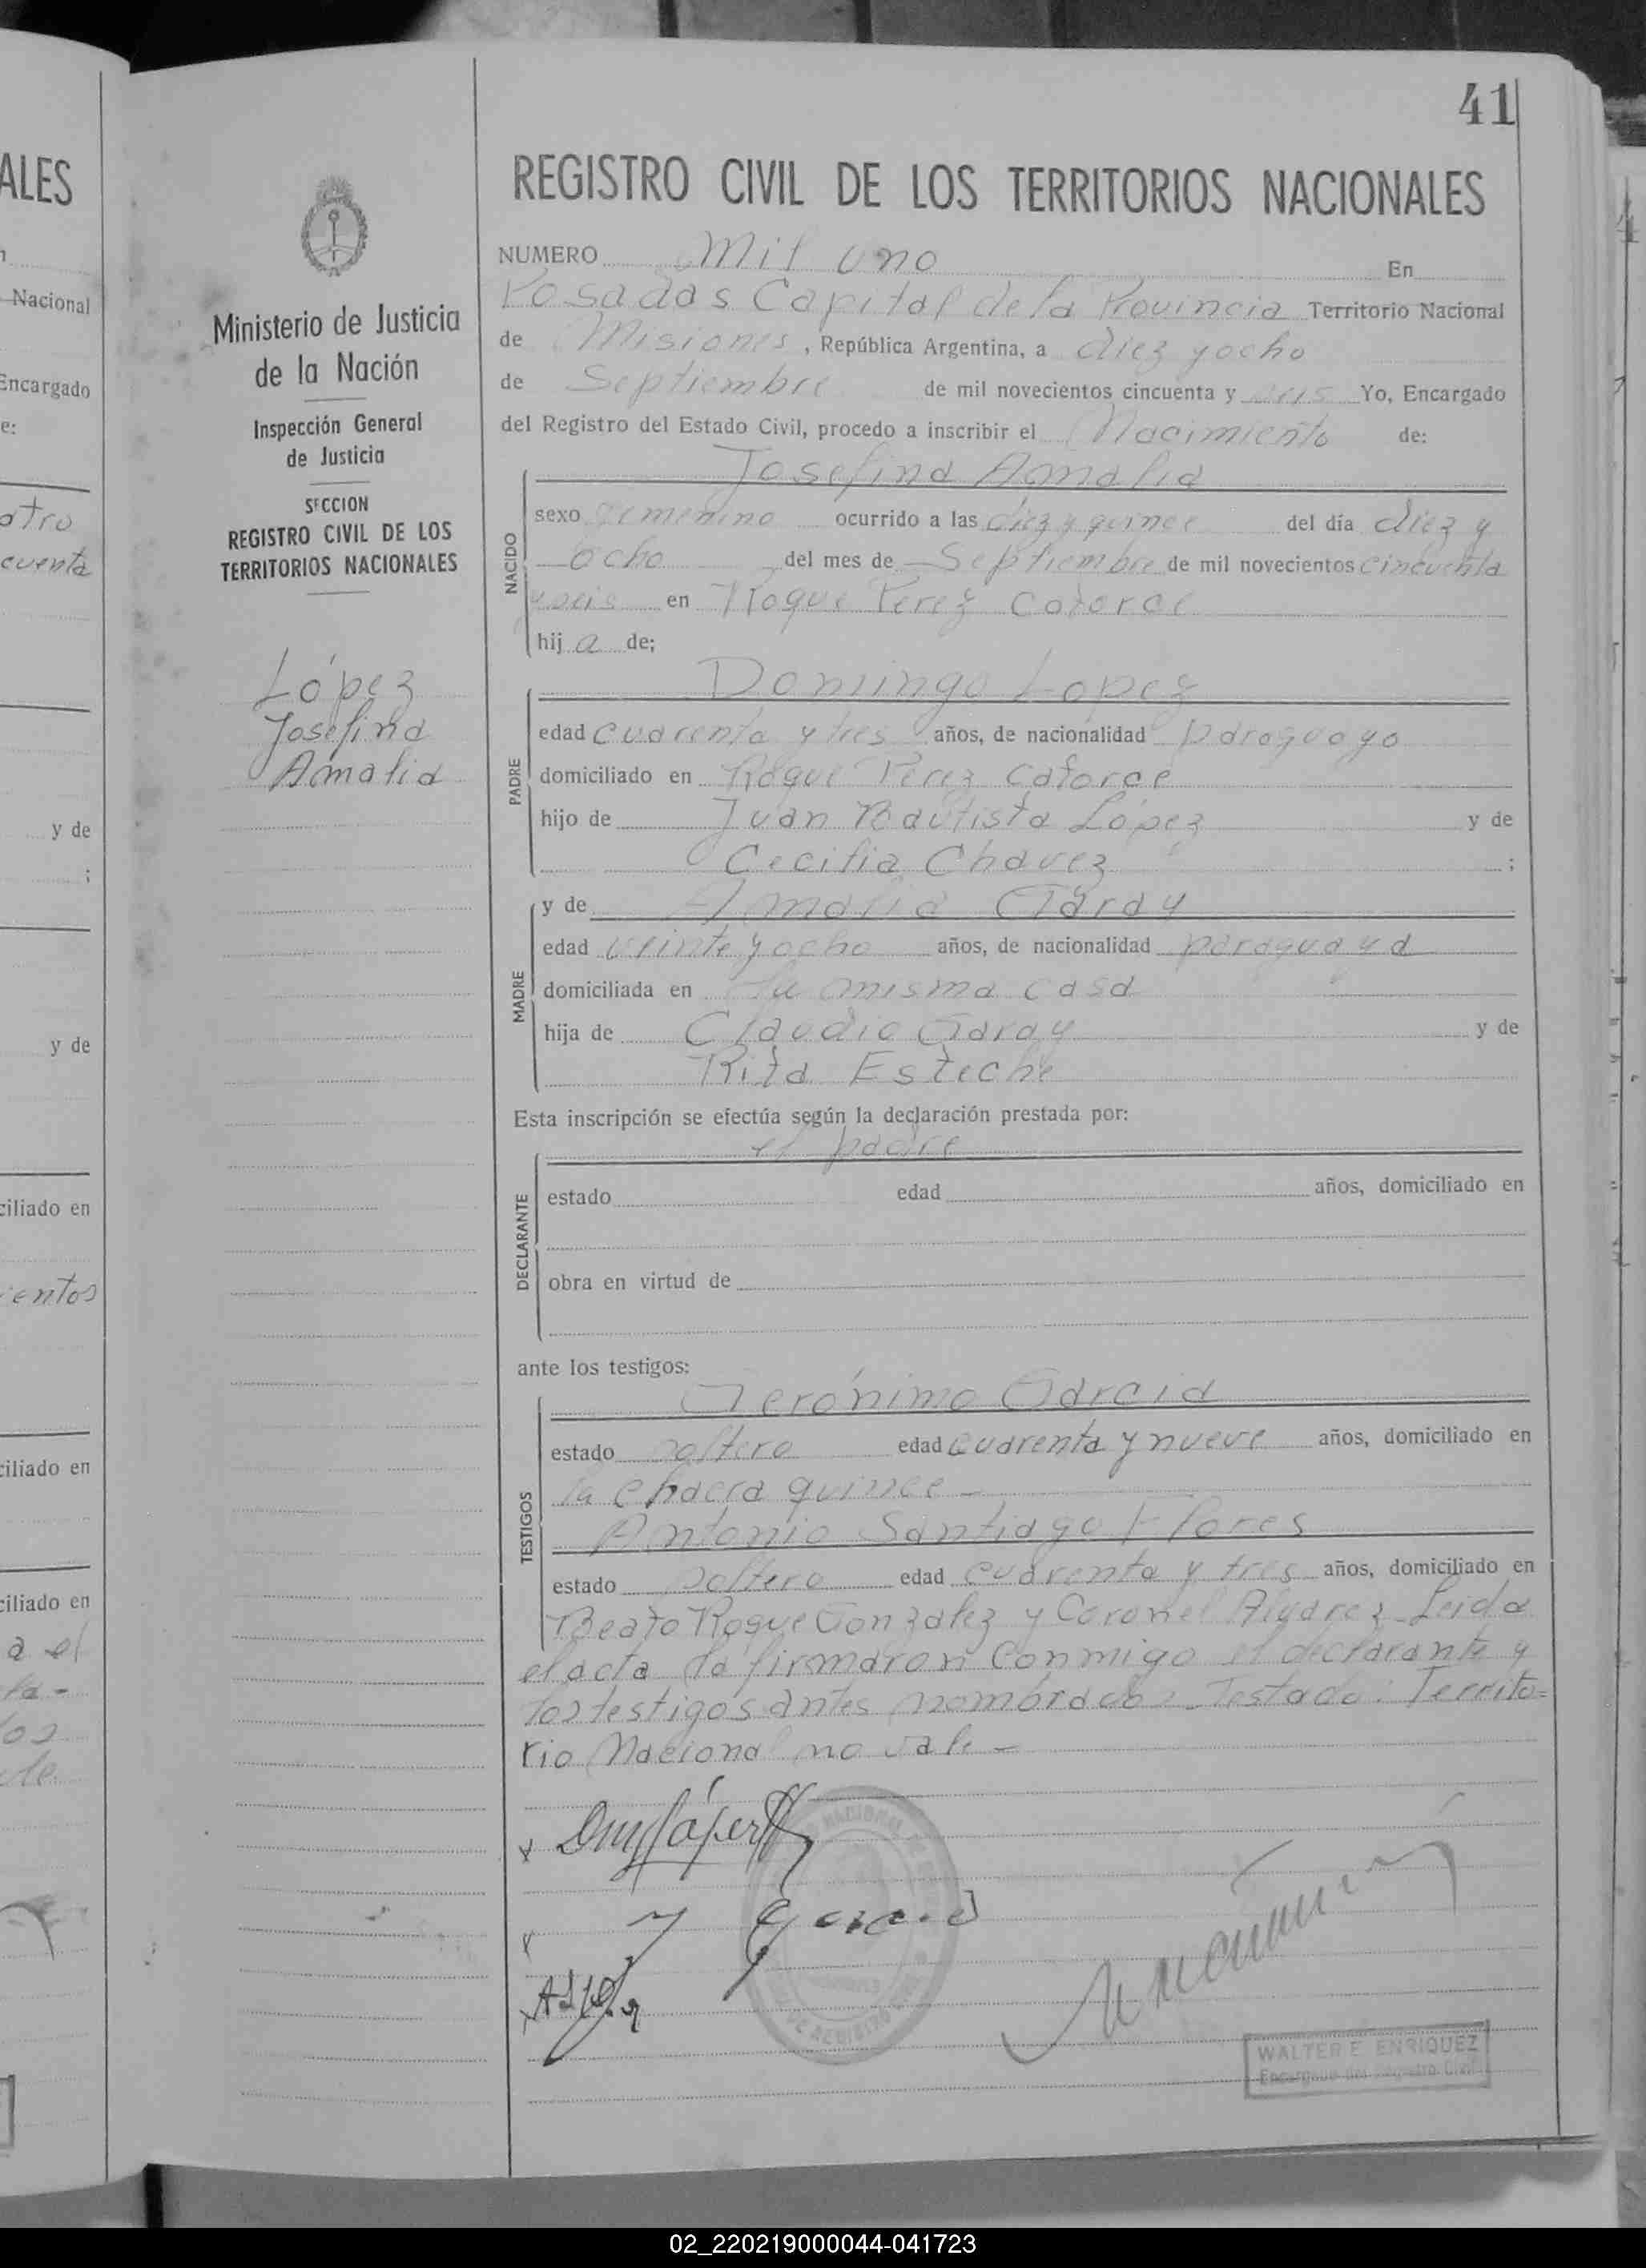 41
ALES
Nacional
Encargado
e:
atro
cuenta
y de
;
y de
ciliado en
entos
ciliado en
ciliado en
a el
la -
los
de
Ministerio de Justicia
de la Nación
Inspección General
de Justicia
SECCION
REGISTRO CIVIL DE LOS
TERRITORIOS NACIONALES
López
Josefina
Amalia
REGISTRO CIVIL DE LOS TERRITORIOS NACIONALES
NUMERO Mil uno En
Posadas Capital de la Provincia Territorio Nacional
de Misiones, República Argentina, a diez y ocho
de Septiembre de mil novecientos cincuenta y seis Yo, Encargado
del Registro del Estado Civil, procedo a inscribir el Nacimiento de:
Josefina Amalia
NACIDO
sexo femenino ocurrido a las diez y quince del día diez y
ocho del mes de Septiembre de mil novecientos cincuenta
y seis en Roque Perez catorce
hij a de;
Domingo Lopez
PADRE
edad cuarenta y tres años, de nacionalidad paraguayo
domiciliado en Roque Perez catorce
hijo de Juan Bautista López y de
Cecilia Chavez ;
y de Amalia Garay
MADRE
edad veinte y ocho años, de nacionalidad paraguaya
domiciliada en la misma casa
hija de Claudio Garay y de
Rita Esteche
Esta inscripción se efectúa según la declaración prestada por:
el padre
DECLARANTE
estado edad años, domiciliado en
obra en virtud de
ante los testigos:
Gerónimo Garcia
TESTIGOS
estado soltero edad cuarenta y nueve años, domiciliado en
la chacra quince -
Antonio Santiago Flores
estado soltero edad cuarenta y tres años, domiciliado en
Beato Roque Gonzalez y Coronel Alvarez - Leida
el acta la firmaron conmigo el declarante y
los testigos antes nombrados - Testado: Territo=
rio Nacional no vale -
WALTER E. ENRIQUEZ
Encargado del Registro Civil
02_220219000044-041723